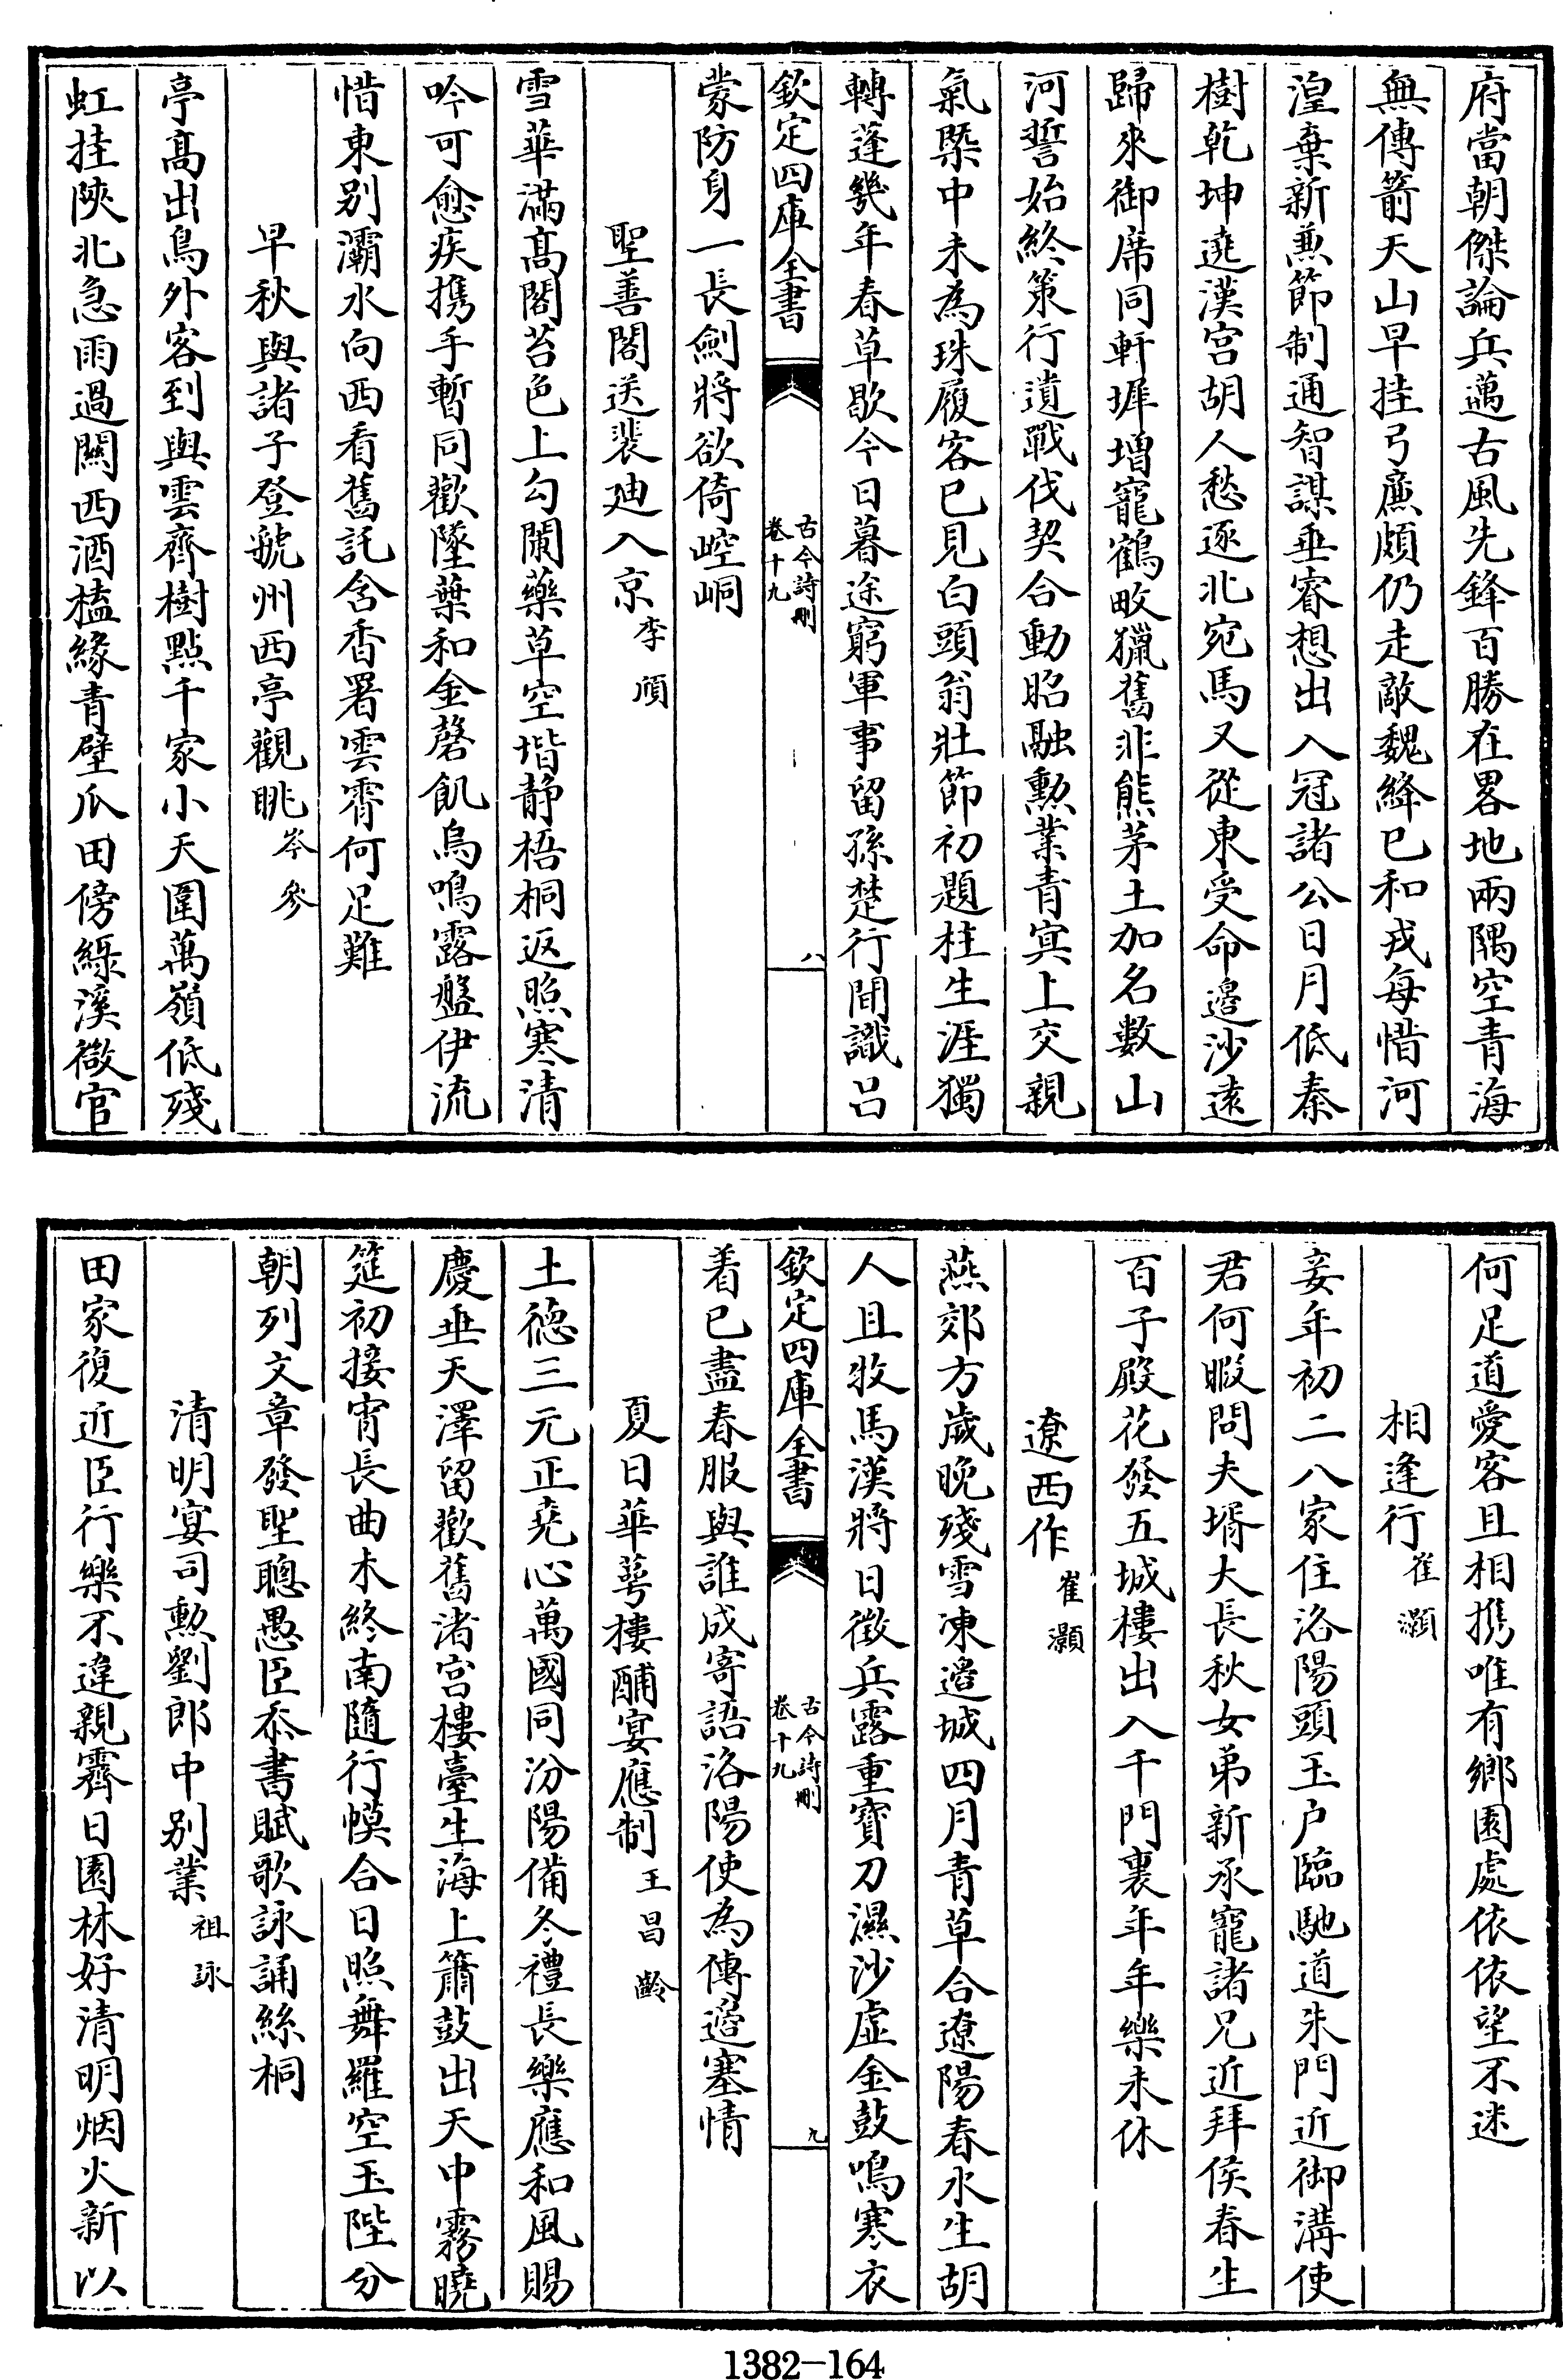 府當朝傑論兵邁古風先鋒百勝在畧地兩隅空青海
無傳箭天山早挂弓廉頗仍走敵魏絳已和戎每惜河
湟棄新兼節制通智謀垂睿想出入冠諸公日月低秦
樹乾坤遶漢宫胡人愁逐北宛馬又從東受命邉沙逺
歸來御席同軒墀増寵鶴畋獵舊非熊茅土加名數山
河誓始終䇿行遺戰伐契合動昭融勲業青㝠上交親
氣槩中未為珠履客已見白頭翁壯節初題柱生涯獨
轉蓬幾年春草歇今日暮途窮軍事留孫楚行間識吕
欽定四庫全書
古今詩刪
卷十九
八
蒙防身一長劍將欲倚崆峒
聖善閣送裴廸入京李頎
雪華滿髙閣苔色上勾闌藥草空堦静梧桐返照寒清
吟可愈疾携手暫同歡墜葉和金磬飢烏鳴露盤伊流
惜東别灞水向西看舊託含香署雲霄何足難
早秋與諸子登虢州西亭觀眺岑參
亭髙出鳥外客到與雲齊樹㸃千家小天圍萬嶺低殘
虹挂陜北急雨過關西酒榼緣青壁瓜田傍緑溪㣲官
何足道愛客且相携唯有鄉園處依依望不迷
相逢行崔灝
妾年初二八家住洛陽頭玉户臨馳道朱門近御溝使
君何暇問夫壻大長秋女弟新承寵諸兄近拜侯春生
百子殿花發五城樓出入千門裏年年樂未休
遼西作崔灝
燕郊方嵗晚殘雪凍邉城四月青草合遼陽春水生胡
人且牧馬漢將日徴兵露重寶刀濕沙虚金鼓鳴寒衣
欽定四庫全書
古今詩刪
卷十九
九
着已盡春服與誰成寄語洛陽使為傳邉塞情
夏日華萼樓酺宴應制王昌齡
土徳三元正堯心萬國同汾陽備冬禮長樂應和風賜
慶垂天澤留歡舊渚宫樓臺生海上簫鼓出天中霧曉
筵初接宵長曲未終南隨行幙合日照舞羅空玉陛分
朝列文章發聖聰愚臣忝書賦歌詠誦絲桐
清明宴司勲劉郎中别業祖詠
田家復近臣行樂不違親霽日園林好清明烟火新以
1382-164